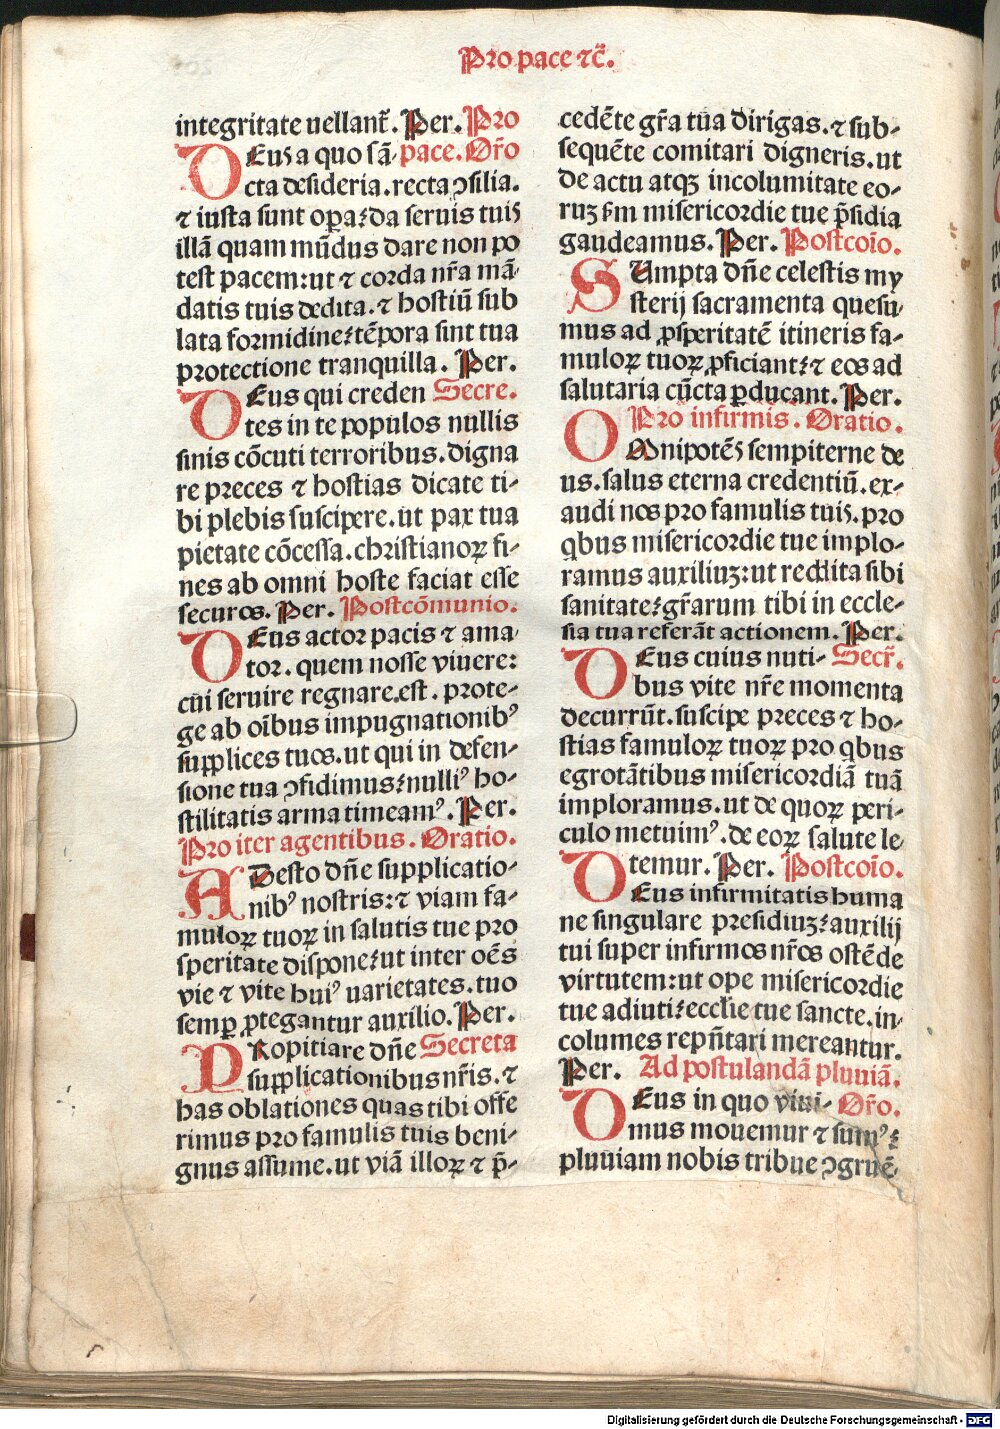 Pro pace ⁊c̃.
integritate uellant̃. Per. Pro
DEus a quo sā- pace. Or̃o
cta desideria. recta ɔsilia.
⁊ iusta sunt oꝑa: da seruis tuis
illā quam mūdus dare non po
test pacem: ut ⁊ corda nr̃a mā-
datis tuis dedita. ⁊ hostiū sub
lata formidine: tēpora sint tua
protectione tranquilla. Per.
DEus qui creden Secre.
tes in te populos nullis
sinis cōcuti terroribus. digna
re preces ⁊ hostias dicate ti-
bi plebis suscipere. ut pax tua
pietate cōcessa. christianoꝝ fi-
nes ab omni hoste faciat esse
securos. Per. Postcōmunio.
DEus actor pacis ⁊ ama-
tor. quem nosse viuere:
cūi seruire regnare est. prote-
ge ab oībus impugnationibꝰ
supplices tuos. ut qui in defen-
sione tua ɔfidimus: nulliꝰ ho-
stilitatis arma timeamꝰ. Per.
Pro iter agentibus. Oratio.
ADesto dn̄e supplicatio-
nibꝰ nostris: ⁊ viam fa-
muloꝝ tuoꝝ in salutis tue pro
speritate dispone: ut inter oēs
vie ⁊ vite huiꝰ uarietates. tuo
semꝑ ꝓtegantur auxilio. Per.
PRopitiare dn̄e Secreta
supplicationibus nr̃is. ⁊
has oblationes quas tibi offe
rimus pro famulis tuis beni-
gnus assume. ut viā illoꝝ ⁊ p̄-
cedēte gr̃a tua dirigas. ⁊ sub-
sequēte comitari digneris. ut
de actu atqꝫ incolumitate eo-
ruꝫ s̄m misericordie tue p̄sidia
gaudeamus. Per. Postcoīo.
SUmpta dn̄e celestis my
sterij sacramenta quesu-
mus ad ꝓsperitatē itineris fa-
muloꝝ tuoꝝ ꝓficiant: ⁊ eos ad
salutaria cūcta ꝑducant. Per.
Pro infirmis. Oratio.
OMnipotēs sempiterne de
us. salus eterna credentiū. ex-
audi nos pro famulis tuis. pro
qbus misericordie tue implo-
ramus auxiliuꝫ: ut reddita sibi
sanitate: gr̃arum tibi in eccle-
sia tua referāt actionem. Per.
DEus cuius nuti- Secr̃.
bus vite nr̃e momenta
decurrūt. suscipe preces ⁊ ho-
stias famuloꝝ tuoꝝ pro qbus
egrotātibus misericordiā tuā
imploramus. ut de quoꝝ peri-
culo metuimꝰ. de eoꝝ salute le-
temur. Per. Postcoīo.
DEus infirmitatis huma
ne singulare presidiuꝫ: auxilij
tui super infirmos nr̃os ostēde
virtutem: ut ope misericordie
tue adiuti: ecclīe tue sancte. in-
columes repn̄tari mereantur.
Per. Ad postulandā pluuiā.
DEus in quo viui- Or̃o.
mus mouemur ⁊ sumꝰ:
pluuiam nobis tribue ɔgruē-
Digitalisierung gefördert durch die Deutsche Forschungsgemeinschaft - DFG